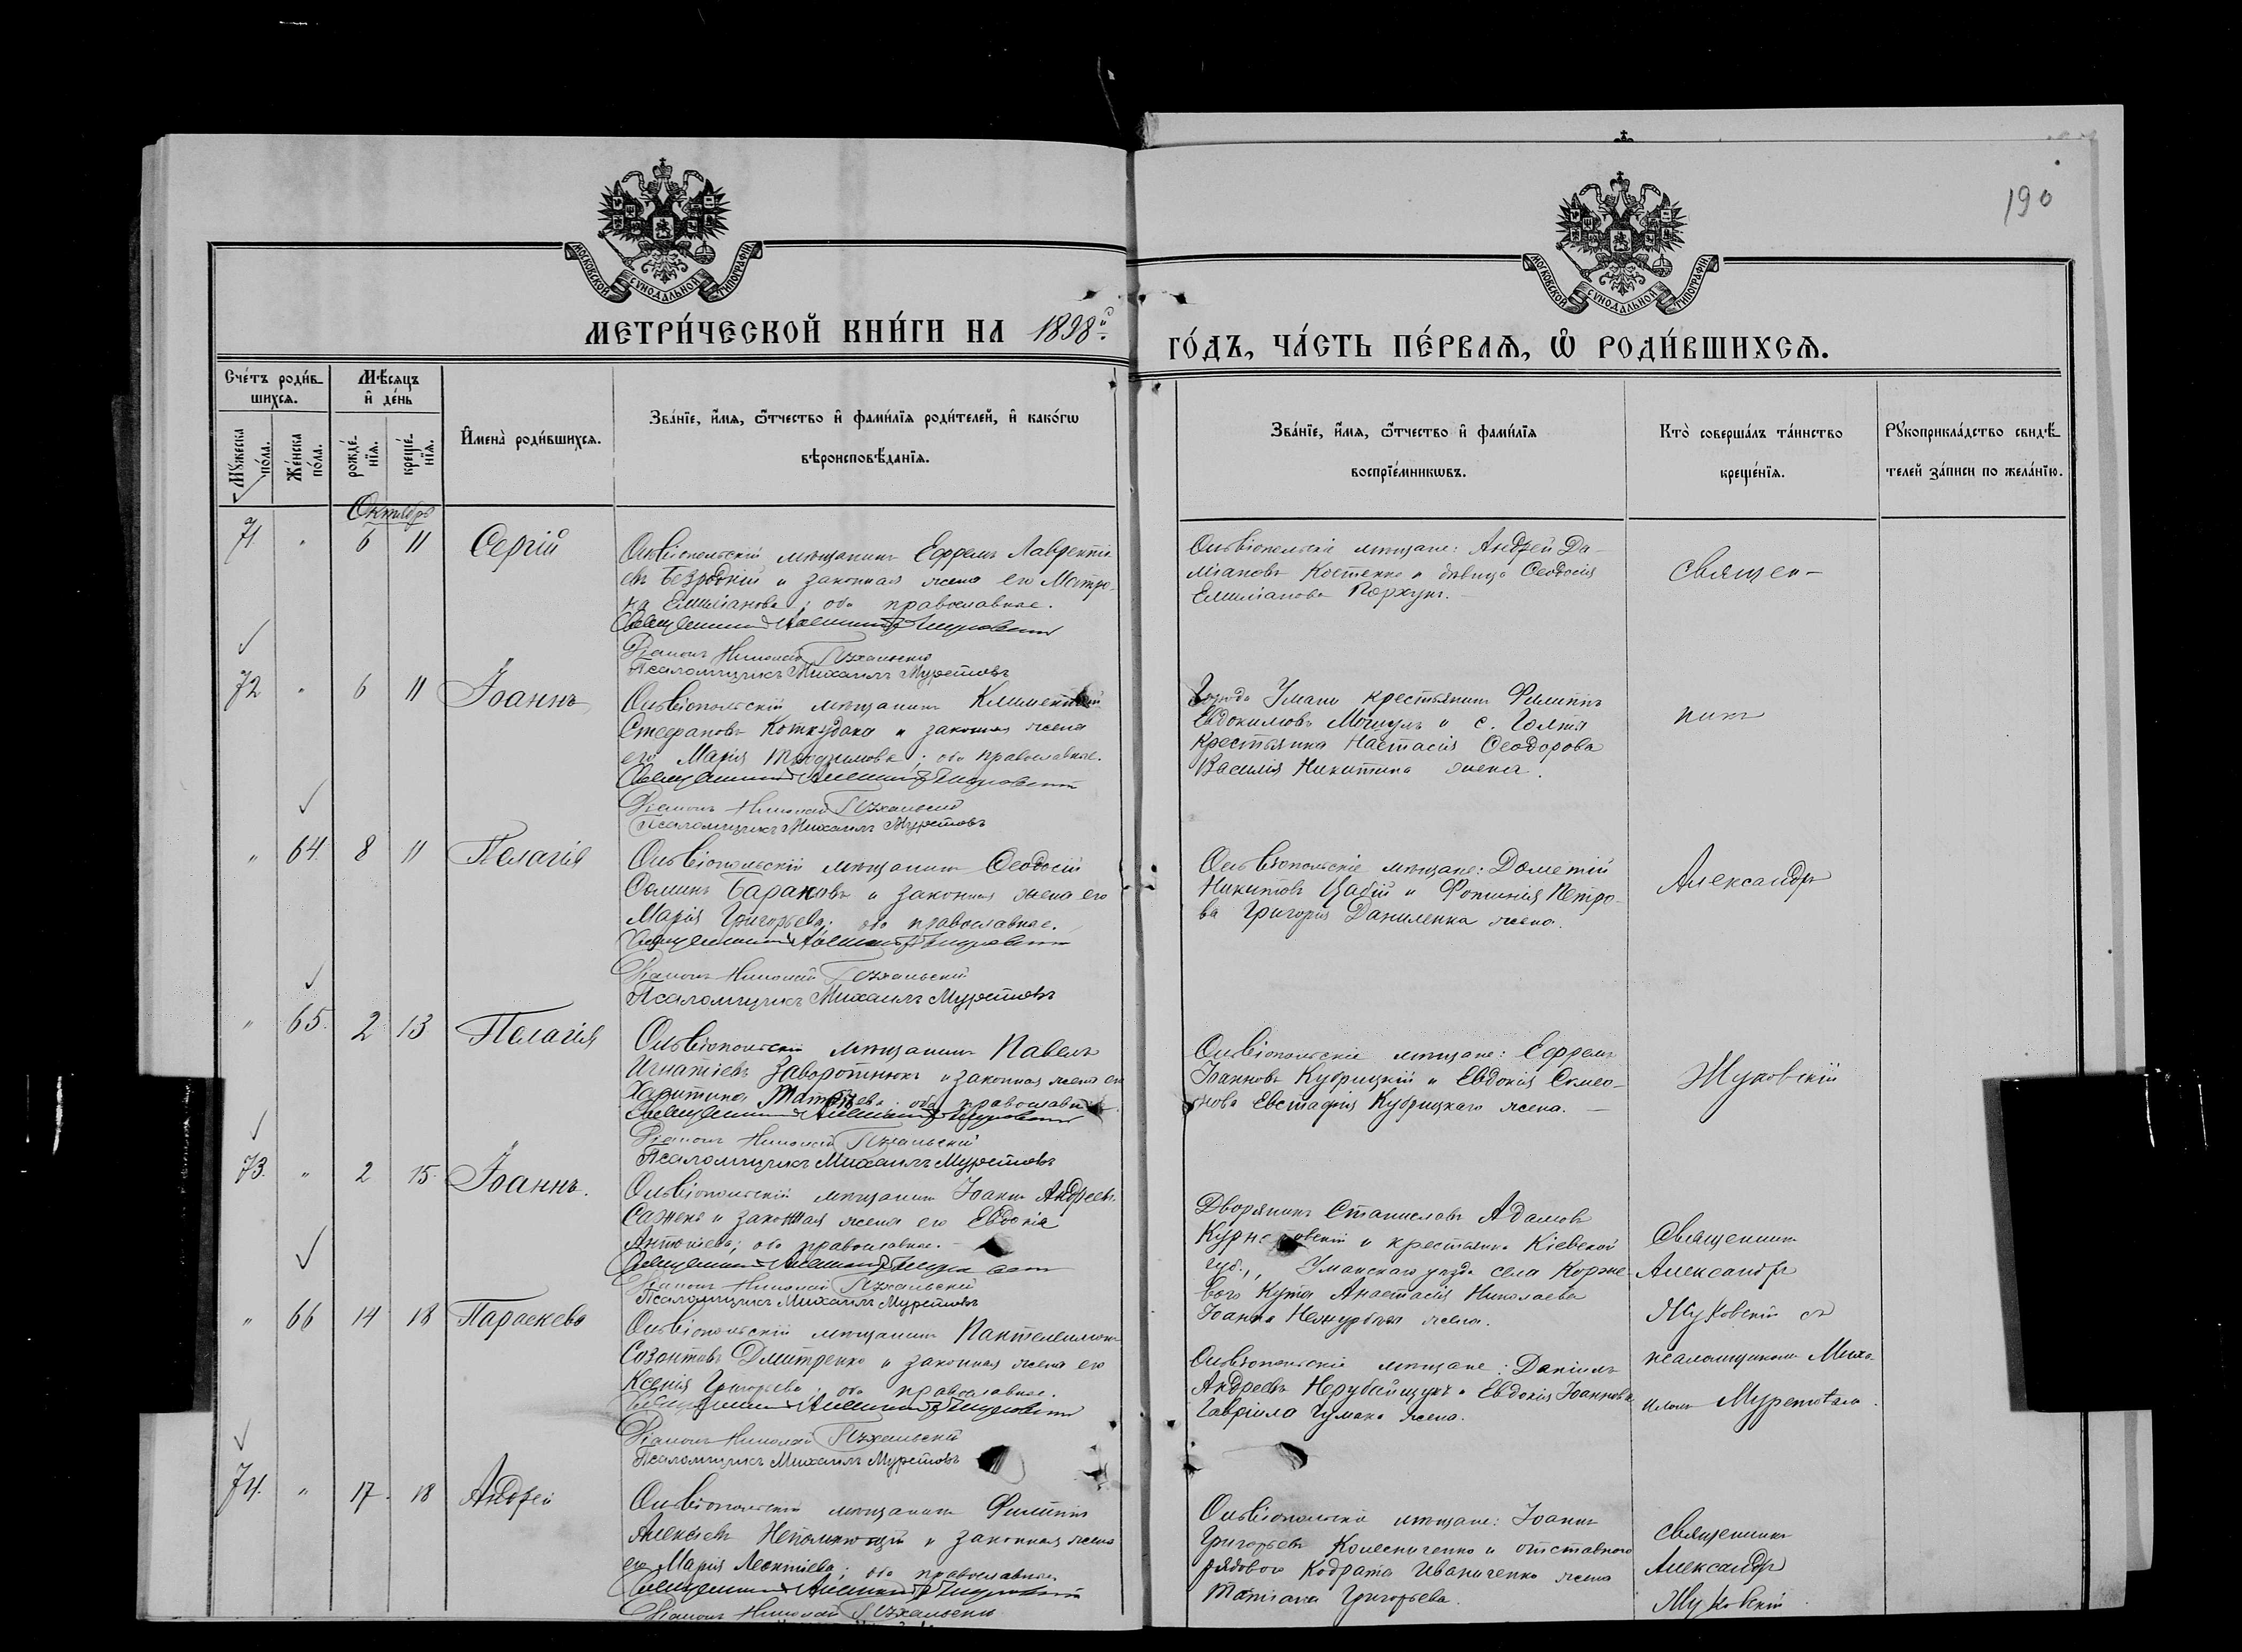 190
МОСКОВСКОЙ СУНОДАЛЬНОЙ ТИПОГРАФІИ
МОСКОВСКОЙ СУНОДАЛЬНОЙ ТИПОГРАФІИ
МЕТРИ́ЧЕСКОЙ КНИ́ГИ НА 1898й
ГО́ДЪ, ЧА́СТЬ ПЕ́РВАѦ, Ѡ РОДИ́ВШИХСѦ.
Сче́тъ роди́в-
шихсѧ.
Мѣ́сѧцъ
и҆ де́нь
Мꙋ́жеска
по́ла.
Же́нска
по́ла.
рожде́-
нїѧ.
креще́-
нїѧ.
И҆мена̀ роди́вшихсѧ.
Зва́нїе, и҆́мѧ, ѻ҆́тчество и҆ фами́лїѧ роди́телей, и҆ како́гѡ
вѣроисповѣ́данїѧ.
Зва́нїе, и҆́мѧ, ѻ҆́тчество и҆ фами́лїѧ
воспрїе́мникѡвъ.
Кто̀ соверша́лъ та́инство
креще́нїѧ.
Рꙋкоприкла́дство свидѣ́-
телей за́писи по жела́нїю.
Октябрь
71. " 6 11 Сергій
Ольвіопольскій мѣщанинъ Ефремъ Лаврентіе-
въ Безродній и законная жена его Матро-
на Емиліанова; оба православные.
Священникъ Александръ Жуковскій
Діаконъ Николай Пухальскій
Псаломщикъ Михаилъ Муретовъ
Ольвіопольскіе мѣщане: Андрей Да-
міановъ Костенко и дѣвица Ѳеодосія
Емиліанова Порхунъ.
Священ-
72 " 6 11 Іоаннъ
Ольвіопольскій мѣщанинъ Климентій
Стефановъ Коткудака и законная жена
его Марія; оба православные.
Священникъ Александръ Жуковскій
Діаконъ Николай Пухальскій
Псаломщикъ Михаилъ Муретовъ
Города Умани крестьянинъ Филиппъ
Евдокимовъ и с. Голты
крестьянка Настасія Ѳеодорова
Василія Никитина жена.
никъ
" 64. 8 11 Пелагія
Ольвіопольскій мѣщанинъ Ѳеодосій
Ѳоминъ Барановъ и законная жена его
Марія Григорьева; оба православные.
Священникъ Александръ Жуковскій
Діаконъ Николай Пухальскій
Псаломщикъ Михаилъ Муретовъ
Ольвіопольскіе мѣщане: Дометій
Никитовъ Цабій и Фотинія Петро-
ва Григорія Даниленка жена.
Александръ
" 65. 2 13 Пелагія
Ольвіопольскій мѣщанинъ Павелъ
Игнатіевъ Заворотнюкъ и законная жена его
Харитина Матѳѣева; оба православные.
Священникъ Александръ Жуковскій
Діаконъ Николай Пухальскій
Псаломщикъ Михаилъ Муретовъ
Ольвіопольскіе мѣщане: Ефремъ
Іоанновъ Кубрицкій и Евдокія Симео-
нова Евстафія Кубрицкаго жена.
Жуковскій
73. " 2 15. Іоаннъ.
Ольвіопольскій мѣщанинъ Іоаннъ Андреевъ
Сажень и законная жена его Евдокія
Антоніева; оба православные.
Священникъ Александръ Жуковскій
Діаконъ Николай Пухальскій
Псаломщикъ Михаилъ Муретовъ
Дворянинъ Станиславъ Адамовъ
и крестьянка Кіевской
губ., Уманскаго уѣзда села Корже-
вого Кута Анастасія Николаева
Іоанна жена.
Священникъ
Александръ
Жуковскій съ
псаломщикомъ Миха-
иломъ Муретовымъ.
" 66 14 18 Параскева
Ольвіопольскій мѣщанинъ Пантелеимонъ
Созонтовъ Дмитренко и законная жена его
Ксенія Григорьева; оба православные.
Священникъ Александръ Жуковскій
Діаконъ Николай Пухальскій
Псаломщикъ Михаилъ Муретовъ
Ольвіопольскіе мѣщане: Даніилъ
Андреевъ Нерубайщукъ и Евдокія Іоаннова
Гавріила Чумака жена.
74. " 17. 18 Андрей
Ольвіопольскій мѣщанинъ Филиппъ
Алексѣевъ Непомнющій и законная жена
его Марія Леонтіева; оба православные.
Священникъ Александръ Жуковскій
Діаконъ Николай Пухальскій
Ольвіопольскіе мѣщане: Іоаннъ
Григорьевъ Колесниченко и отставного
рядового Кодрата Иваниченко жена
Татіана Григорьева.
Священникъ
Александръ
Жуковскій